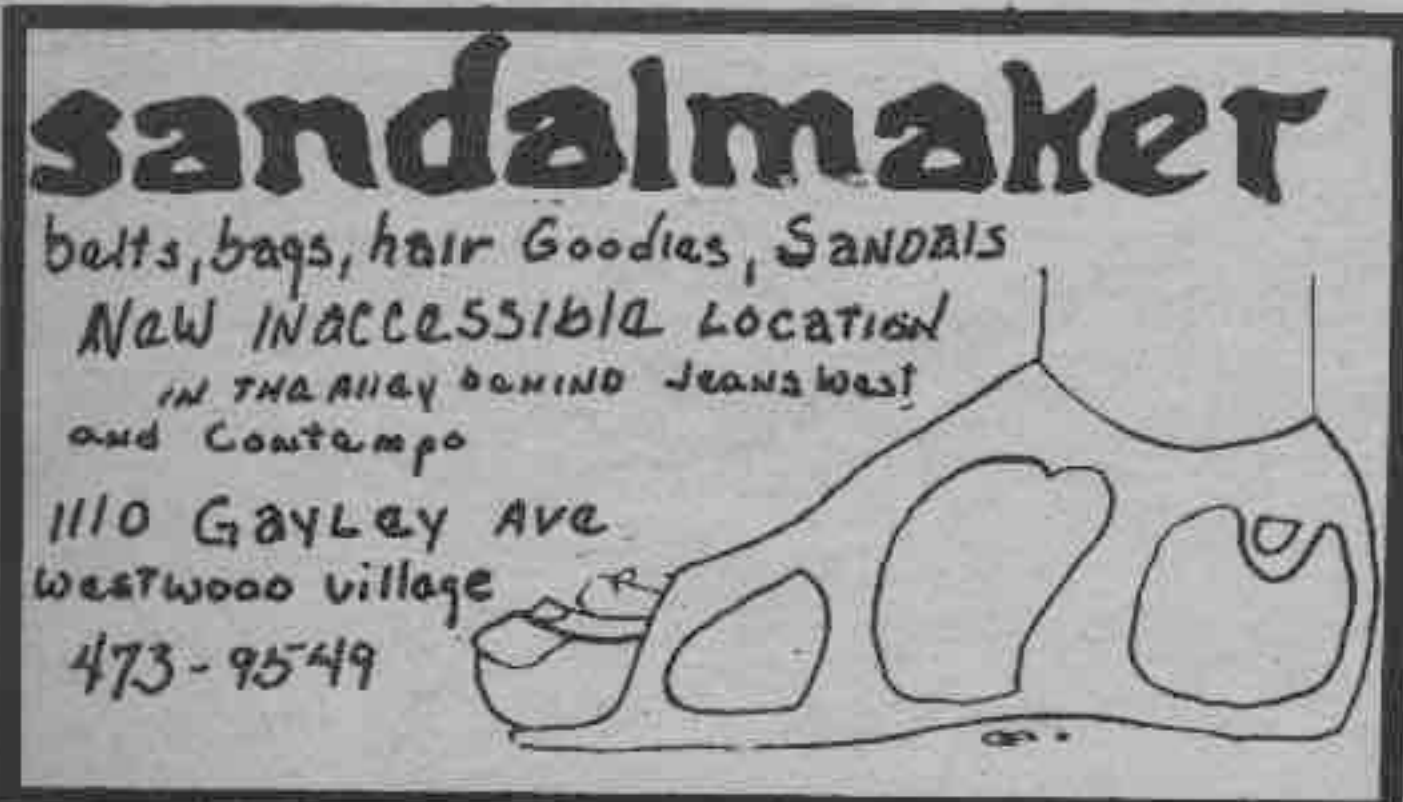 sandalmaker
belts, bags, hair Goodies, SANDAlS
NeW INaCCeSSIblE LOCaTION
IN THE Alley BEHIND Jeans West
and Contempo
1110 GayLey Ave
WesTwooD village
473-9549